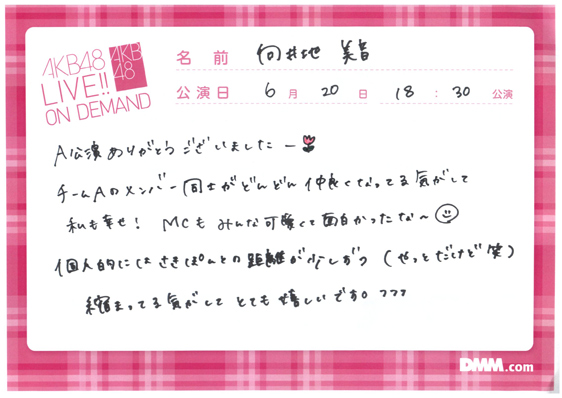 AKB48
LIVE!!
ON DEMAND
AKB
48
名前 向井地 美音
公演日 6月 20日 18:30 公演
A公演ありがとうございましたー
チームAのメンバー同士がどんどん仲良くなってる気がして
私も幸せ! MCもみんな可愛くて面白かったな〜
個人的にはさきぽんとの距離が少しずつ (やっとだけど笑)
縮まってる気がして とても嬉しいです。フフフ
DMM.com